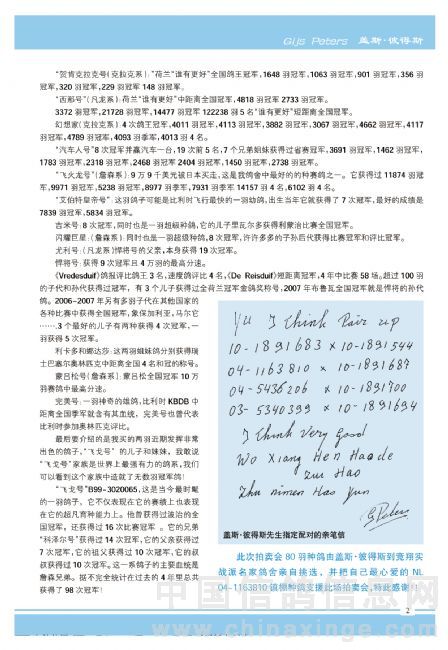 Gijs Peters 盖斯·彼得斯
“贺肯克拉克号(克拉克系):“荷兰“谁有更好”全国鸽王冠军,1648羽冠军,1063羽冠军,901羽冠军,356羽
冠军,320羽冠军,229羽冠军148羽冠军。
“西那号”(凡龙系):荷兰“谁有更好”中距离全国冠军,4818羽冠军2733羽冠军。
3372羽冠军,21728羽冠军,14477羽冠军122238羽5名“谁有更好”短距离全国冠军。
幻想家(克拉克系):4次鸽王冠军,4011羽冠军,4113羽冠军,3882羽冠军,3067羽冠军,4662羽冠军,4117
羽冠军,4789羽冠军,4093羽季军,4013羽4名。
“汽车人号”8次冠军并赢汽车一台,19次前5名,7个兄弟姐妹获得过省赛冠军,3691羽冠军,1462羽冠军,
1783羽冠军,2318羽冠军,2468羽冠军2404羽冠军,1450羽冠军,2738羽冠军。
“飞火龙号”(詹森系):9万9千美元被日本买走,这是我鸽舍中最好的的种赛鸽之一。它获得过11874羽冠
军,9971羽冠军,5238羽冠军,8977羽季军,7931羽季军14157羽4名,6102羽4名。
“艾伯特皇帝号”:这羽鸽子可能是比利时飞行最快的一羽幼鸽,出生当年它就获得了7次冠军,最好的成绩是
7839羽冠军,5834羽冠军。
吉米号:8次冠军,同时也是一羽超级种鸽,它的儿子里瓦尔多获得利蒙治比赛全国冠军。
闪耀巨星:(詹森系):同时也是一羽超级种鸽,8次冠军,许许多多的子孙后代获得比赛冠军和评比冠军。
尤利号:(凡龙系)悍将号的父亲,本身获得19次冠军。
悍将号:获得9次冠军且4万羽的最高分速。
《Vredesduif》鸽报评比鸽王3名,速度鸽评比4名,《De Reisduif》短距离冠军,4年中比赛58场。超过100羽
的子代和孙代获得过冠军,有3个儿子获得过全荷兰冠军金鸽奖称号,2007年布鲁瓦全国冠军就是悍将的孙代
鸽。2006-2007年另有多羽子代在其他国家的
各种比赛中获得全国冠军,象保加利亚,马尔它
……,3个最好的儿子有两种获得4次冠军,一
羽获得5次冠军。
利卡多和娜达莎:这两羽姐妹鸽分别获得瑞
士巴塞尔奥林匹克中距离全国4名和冠的称号。
蒙吕松号(詹森系):蒙吕松全国冠军10万
羽赛鸽中最高分速。
完美号:一羽神奇的雄鸽,比利时KBDB中
距离全国季军就含有其血统,完美号也曾代表
比利时参加奥林匹克评比。
最后要介绍的是我买的两羽近期发挥非常
出色的鸽子,“飞戈号”的儿子和妹妹,我敢说
“飞戈号”家族是世界上最强有力的鸽系,我们
可以看到这个家族中造就了无数羽冠军鸽!
“飞戈号”B99-3020065,这是当今最时髦
的一羽鸽子,它不仅表现在它的赛绩上也表现
在它的超凡育种能力上。他曾获得过波治的全
国冠军,还获得过16次比赛冠军。它的兄弟
“科泽尔号”获得过14次冠军,它的父亲获得过
7次冠军,它的祖父获得过10次冠军,它的叔
叔获得过10次冠军。这一系鸽子的主要血统是
詹森兄弟。据不完全统计在过去的4年里总共
获得了98次冠军!
I Think Pair up
10-1891683 x 10-1891544
04-1163810 x 10-1891687
04-5436206 x 10-1891700
03-5340399 x 10-1891694
I Think Very Good
Wo Xiang Hen Haode
Zui Hao
Zhu nimen Hao Yun
G Peters
盖斯·彼得斯先生指定配对的亲笔信
此次拍卖会80羽种鸽由盖斯·彼得斯到宽翔实
战派名家鸽舍亲自挑选,并把自己最心爱的NL
04-1163810镇棚种鸽支援此场拍卖会,特此感谢!!
2
中国信鸽信息网
www.chinaxinge.com